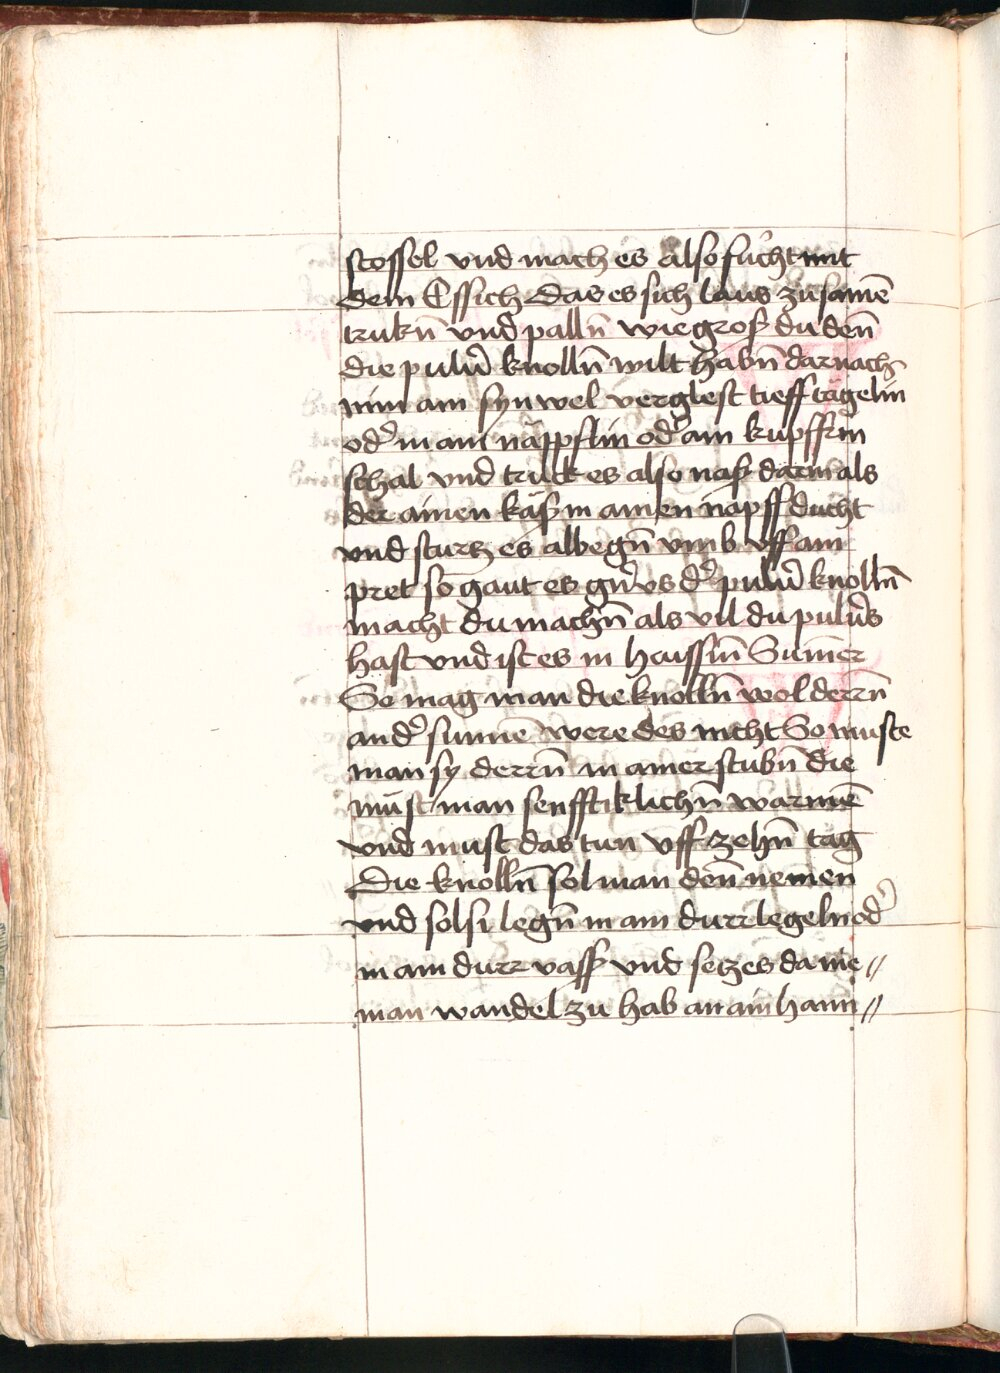 stossel vnd mach es also fücht mit
dem Essich das es sich laus zusamē
trukn̄ vnd palln̄ wie gros du den̄
die pulu̾ knolln̄ wilt habn̄ darnach
nim ain synwel verglest tieff tägelin
od̾ in ain näppflin od̾ ain kupffrin
schal vnd truck es also nass darin als
der ainen käss in ainen napff ducht
vnd stürtz es albegn̄ vmb vff ain
pret so gaut es gn̄ vs d̾ pulu̾ knolln̄
macht du machn̄ als vil du pulu̾s
hast vnd ist es in haissm̄ Sumer
So mag man die knolln̄ wol derrn̄
an d̾ sunnē were des nicht So muste
man sy derrn̄ in ainer stubn̄ die
müst man senfftiklichn̄ warmē
vnd must das tun vff zehn̄ tag
Die knolln̄ sol man den̄ nemen
vnd sol si legn̄ in ain durr legeln od̾
in ain durr vass vnd setz es da nie //
man wandel zu hab an ain hann //